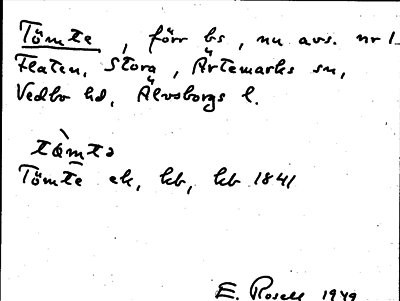 Tömte, förr bs, nu avs. nr 1
Flaten, Stora, Ärtemarks sn,
Vedbo hd, Älvsborgs l.
tö̀mtə
Tömte ek, kb, kb 1841
E. Rosell 1949